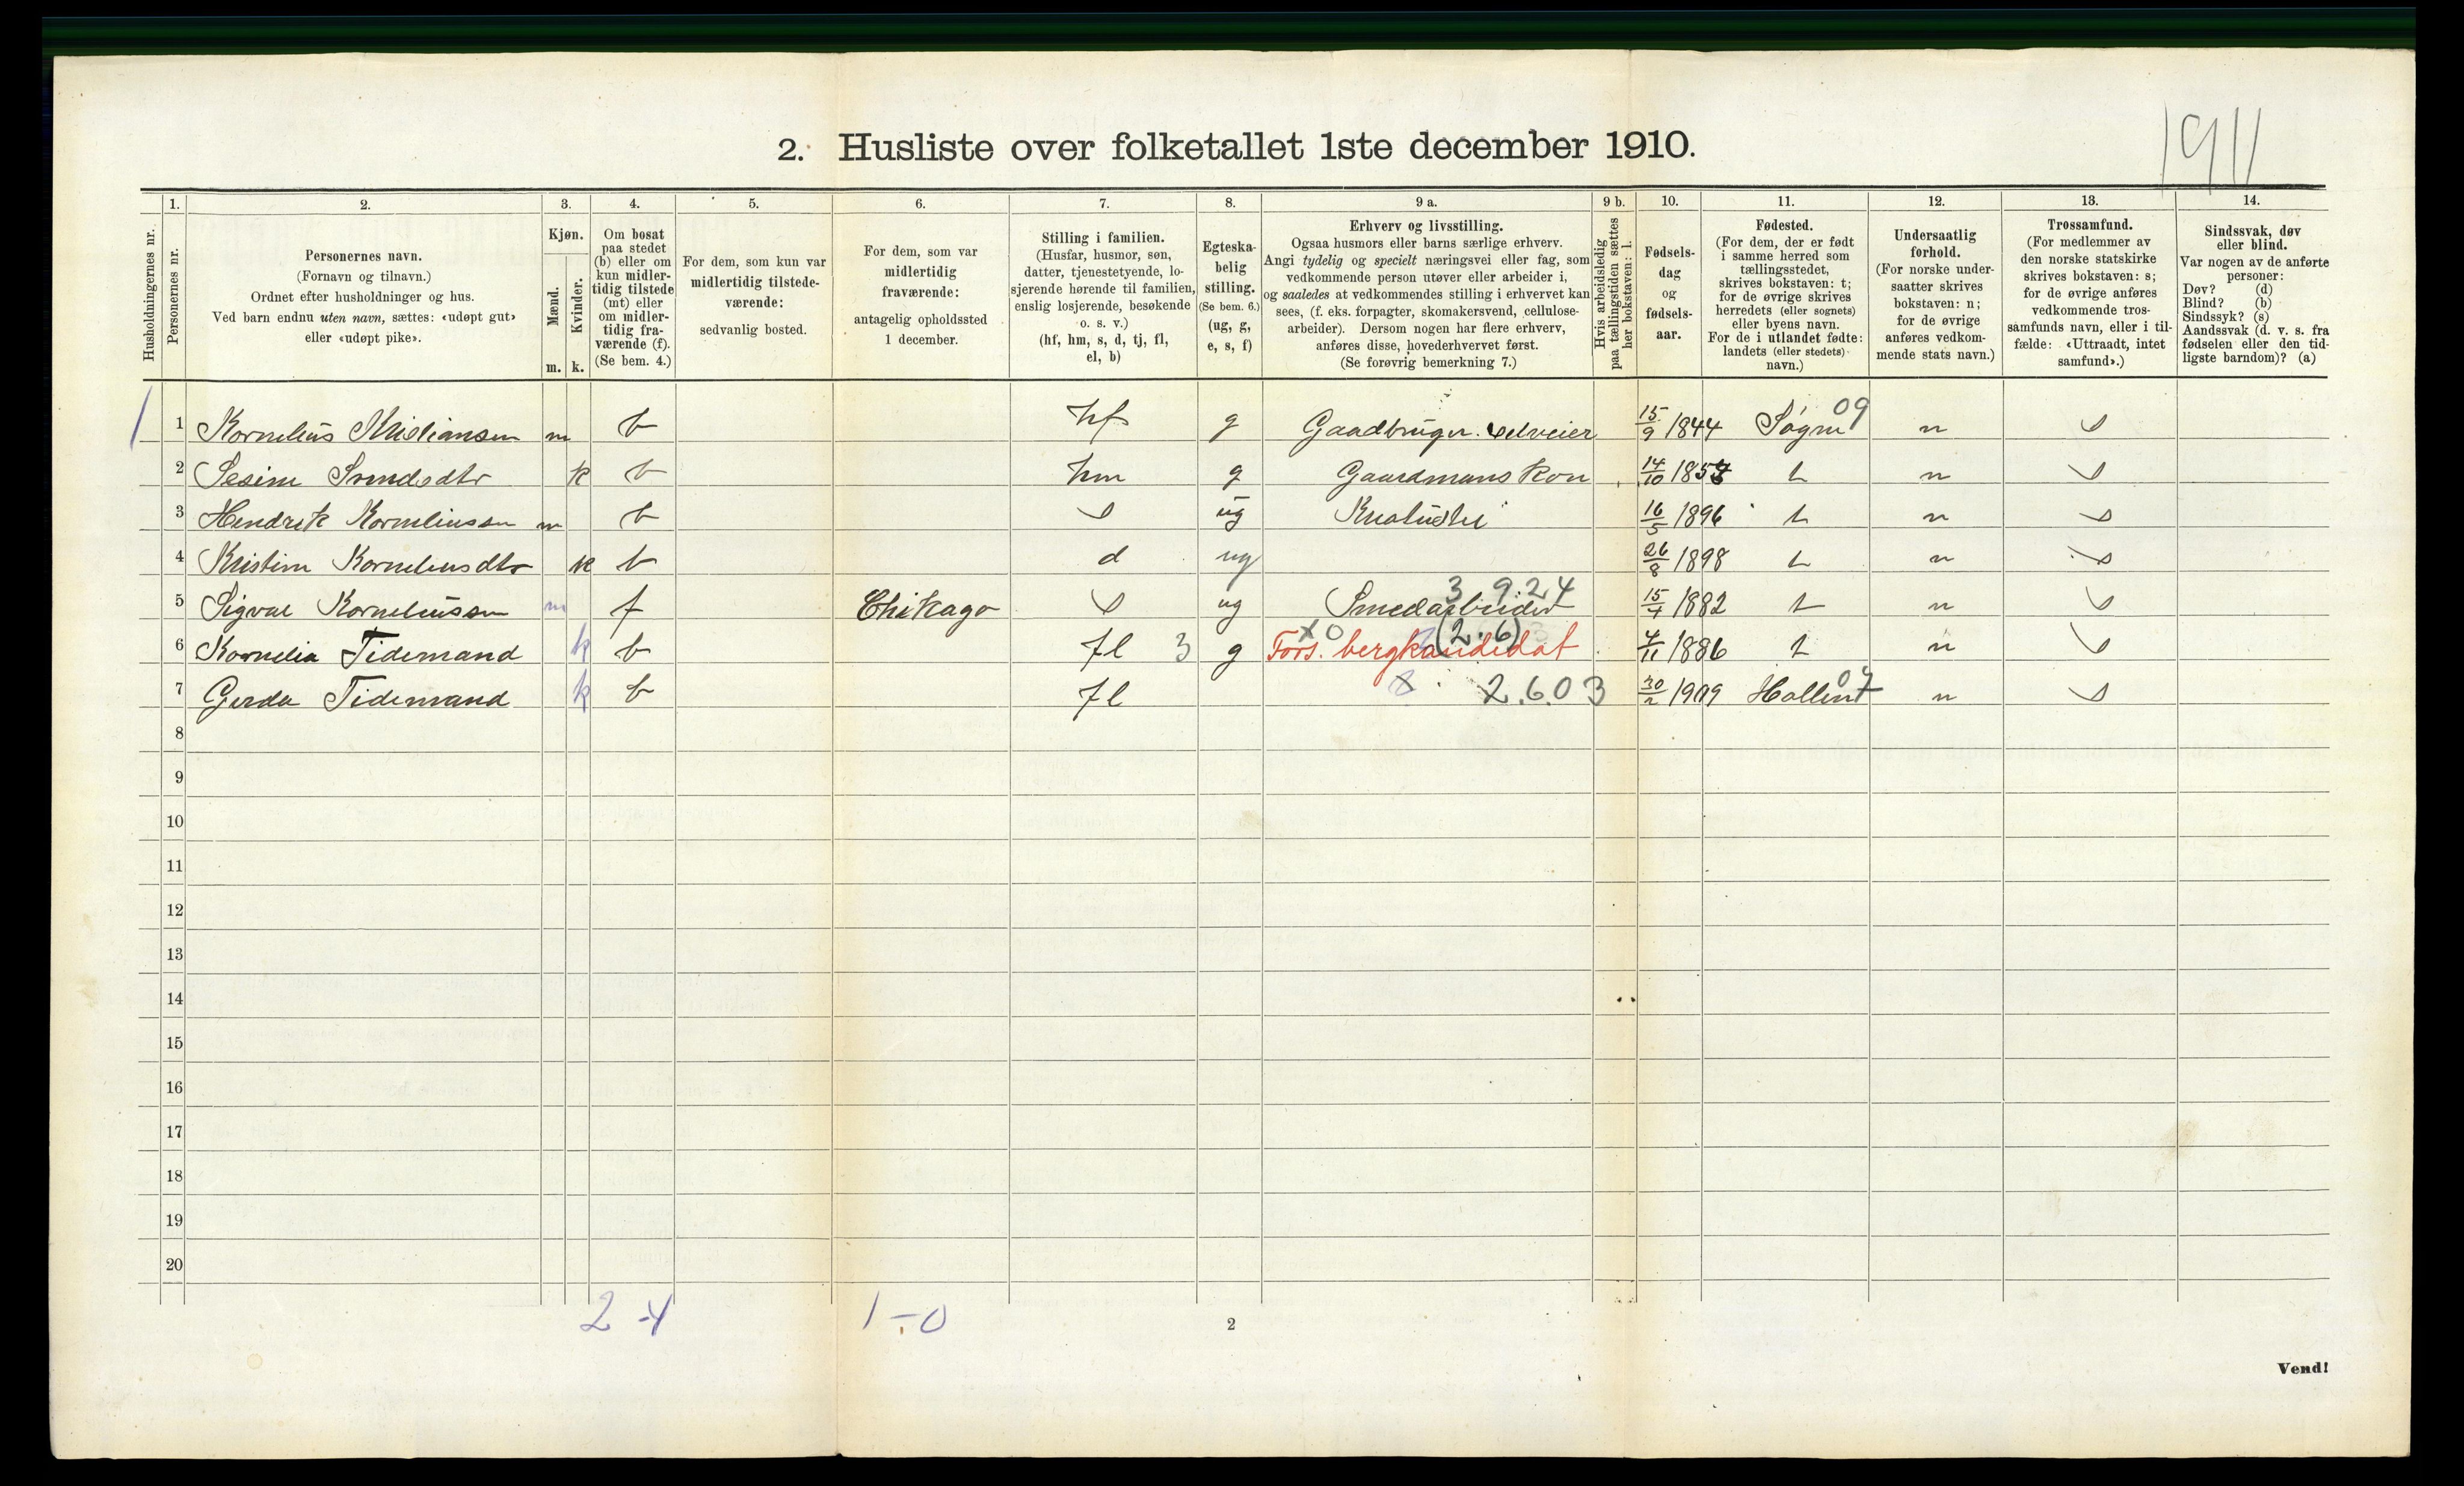 1911
2. Husliste over folketallet 1ste december 1910.
Husholdningernes nr.
1. Personernes nr.
2. Personernes navn.
(Fornavn og tilnavn.)
Ordnet efter husholdninger og hus.
Ved barn endnu uten navn, sættes: «udøpt gut»
eller «udøpt pike».
3. Kjøn.
Mænd. m.
Kvinder. k.
4. Om bosat
paa stedet
(b) eller om
kun midler-
tidig tilstede
(mt) eller
om midler-
tidig fra-
værende (f).
(Se bem. 4.)
5. For dem, som kun var
midlertidig tilstede-
værende:
sedvanlig bosted.
6. For dem, som var
midlertidig
fraværende:
antagelig opholdssted
1 december.
7. Stilling i familien.
(Husfar, husmor, søn,
datter, tjenestetyende, lo-
sjerende hørende til familien,
enslig losjerende, besøkende
o. s. v.)
(hf, hm, s, d, tj, fl,
el, b)
8. Egteska-
belig
stilling.
(Se bem. 6.)
(ug, g,
e, s, f)
9 a. Erhverv og livsstilling.
Ogsaa husmors eller barns særlige erhverv.
Angi tydelig og specielt næringsvei eller fag, som
vedkommende person utøver eller arbeider i,
og saaledes at vedkommendes stilling i erhvervet kan
sees, (f. eks. forpagter, skomakersvend, cellulose-
arbeider). Dersom nogen har flere erhverv,
anføres disse, hovederhvervet først.
(Se forøvrig bemerkning 7.)
9 b. Hvis arbeidsledig
paa tællingstiden sættes
her bokstaven: l.
10. Fødsels-
dag
og
fødsels-
aar.
11. Fødested.
(For dem, der er født
i samme herred som
tællingsstedet,
skrives bokstaven: t;
for de øvrige skrives
herredets (eller sognets)
eller byens navn.
For de i utlandet fødte:
landets (eller stedets)
navn.)
12. Undersaatlig
forhold.
(For norske under-
saatter skrives
bokstaven: n;
for de øvrige
anføres vedkom-
mende stats navn.)
13. Trossamfund.
(For medlemmer av
den norske statskirke
skrives bokstaven: s;
for de øvrige anføres
vedkommende tros-
samfunds navn, eller i til-
fælde: «Uttraadt, intet
samfund».)
14. Sindssvak, døv
eller blind.
Var nogen av de anførte
personer:
Døv? (d)
Blind? (b)
Sindssyk? (s)
Aandssvak (d. v. s. fra
fødselen eller den tid-
ligste barndom)? (a)
1 1 Kornelius Kristiansen m b hf g Gaadbruger. Selveier 15/9 1844 Søgne 09 n s
2 k b hm g Gaardmans Kon 14/10 t n s
3 Hendrik Korneliussen m b s ug 16/5 1896 t n s
4 Kristine Korneliusdtr k b d ug 26/8 1898 t n s
5 Sigval Korneliussen m f Chikago s ug Smedarbeider 3 9.24 15/4 1882 t n s
6 Kornelia Tidemand k b fl 3 g Fors. bergkandidat x0 (2.6) 4/11 1886 t n s
7 Gerda Tidemand k b fl 2.6.03 1909 07 n s
8
9
10
11
12
13
14
15
16
17
18
19
20
2-4 1-0
2
Vend!